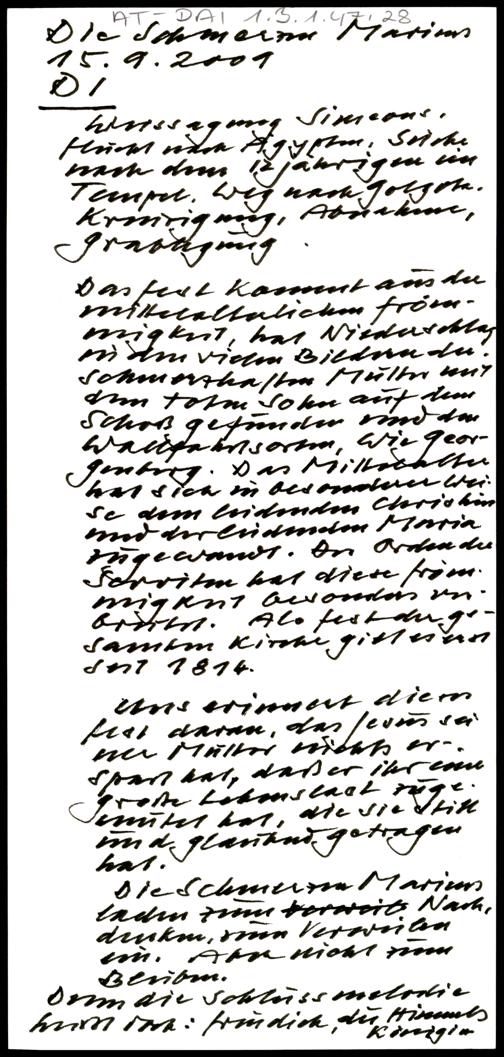 AT-DAI 1.3.1.47.28
Die Schmerzen Mariens
15.9.2009
DI
Weissagung Simeons,
Flucht nach Ägypten, Suche
nach dem 12jährigen im
Tempel, Weg nach Golgota.
Kreuzigung, Abnahme,
Grablegung.
Das Fest kommt aus der
mittelalterlichen Fröm-
migkeit, hat Niederschlag
in den vielen Bildern der
schmerzhaften Mutter mit
dem toten Sohn auf dem
Schoß gefunden und den
Wallfahrtsorten, wie Geor-
genberg. Das Mittelalter
hat sich in besonderer Wei-
se dem leidenden Christus
und der leidenden Maria
zugewandt. Der Orden der
Serviten hat diese Fröm-
migkeit besonders ver-
breitet. Als Fest der ge-
samten Kirche gilt es erst
seit 1814.
Uns erinnert dieses
Fest daran, das Jesus sei
ner Mutter nichts er-
spart hat, daß er ihr eine
große Lebenslast zuge-
mutet hat, die sie still
und glaubend getragen
hat.
Die Schmerzen Mariens
laden zum verweil Nach-
denken, zum Verweilen
ein. Aber nicht zum
Bleiben.
Denn die Schlussmelodie
heißt doch: freu dich, des Himmels
Königin